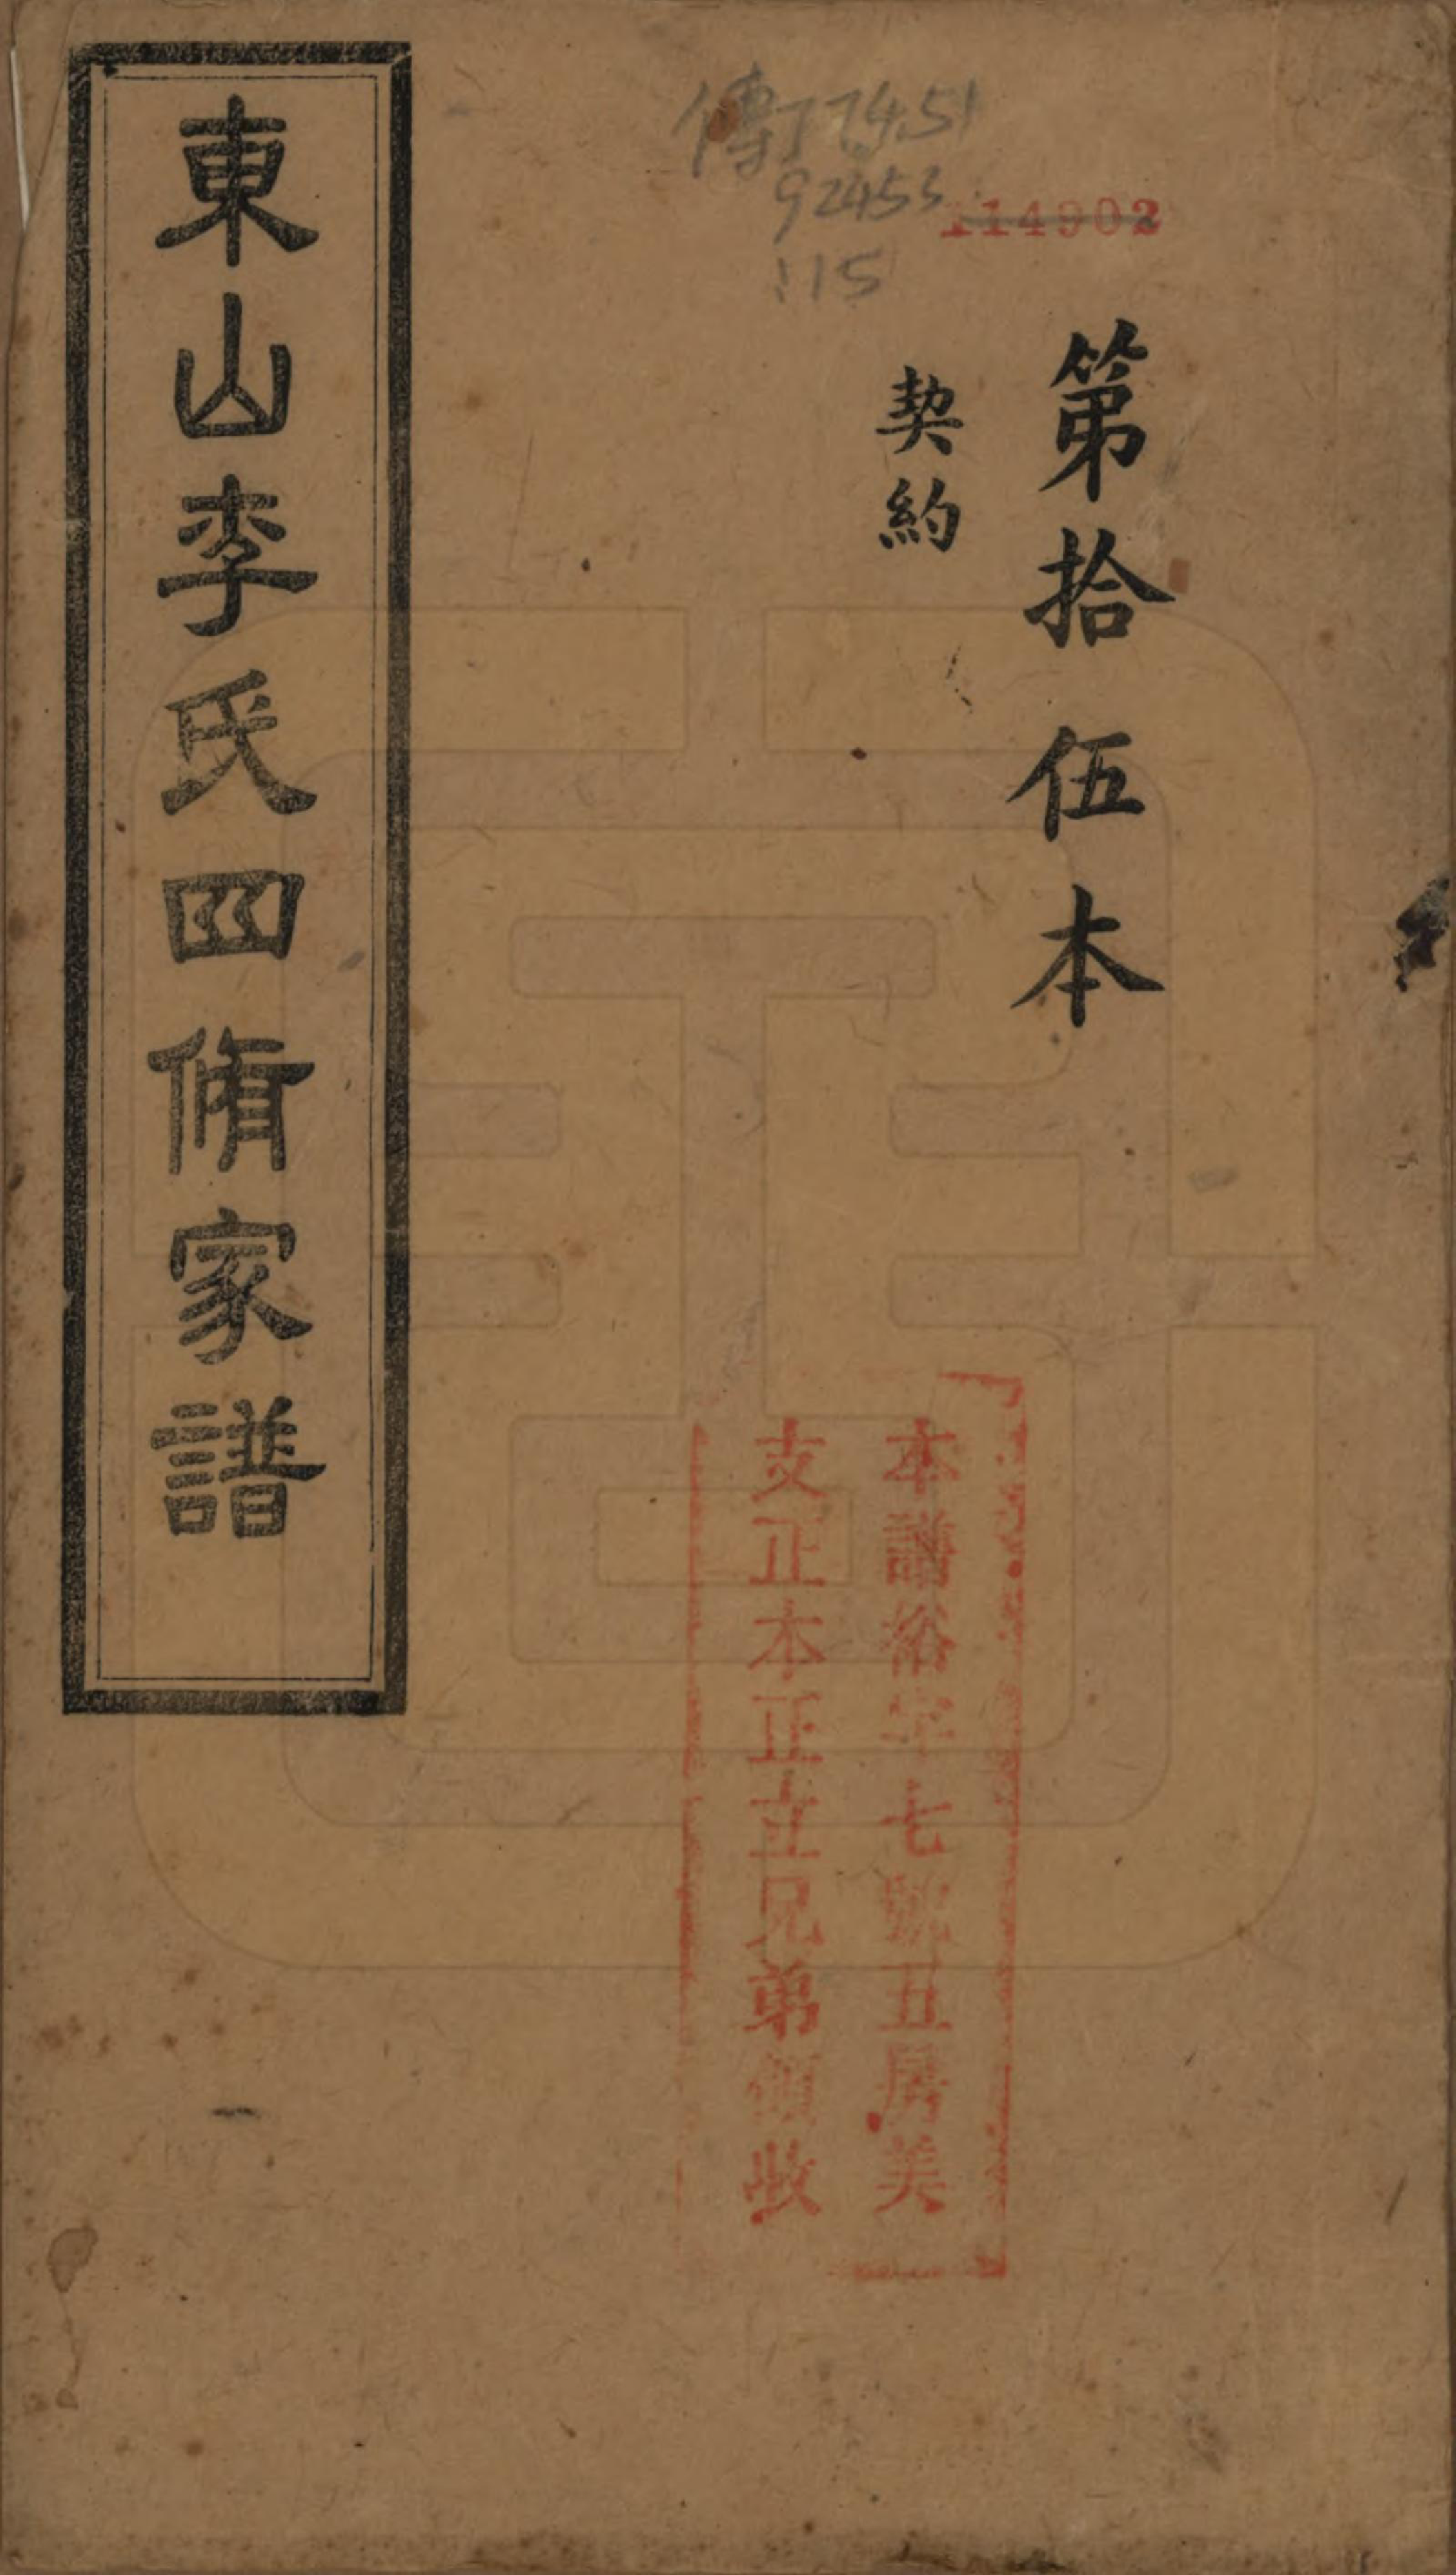 傳 774.51
92453
115
114902
第拾伍本
契約
東山李氏四脩家譜
本譜裕字七號五房美
支正本正立兄弟領收